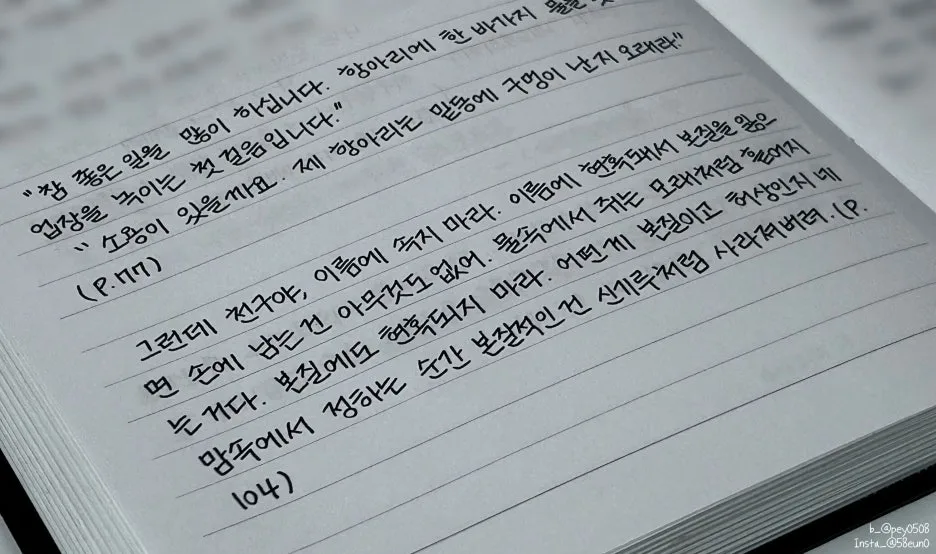 "참 좋은 일을 많이 하십니다. 항아리에 한 바가지 물을
업장을 녹이는 첫 걸음입니다."
" 소용이 있을까요. 제 항아리는 밑둥에 구멍이 난지 오래라."
(P.77)
그런데 친구야, 이름에 속지 마라. 이름에 현혹돼서 본질을 잃으
면 손에 남는 건 아무것도 없어. 물속에서 쥐는 모래처럼 흩어지
는 거다. 본질에도 현혹되지 마라. 어떤게 본질이고 허상인지 네
맘속에서 정하는 순간 본질적인 건 신기루처럼 사라져버려. (P.
104)
b_@pey0508
Insta_@58eun0